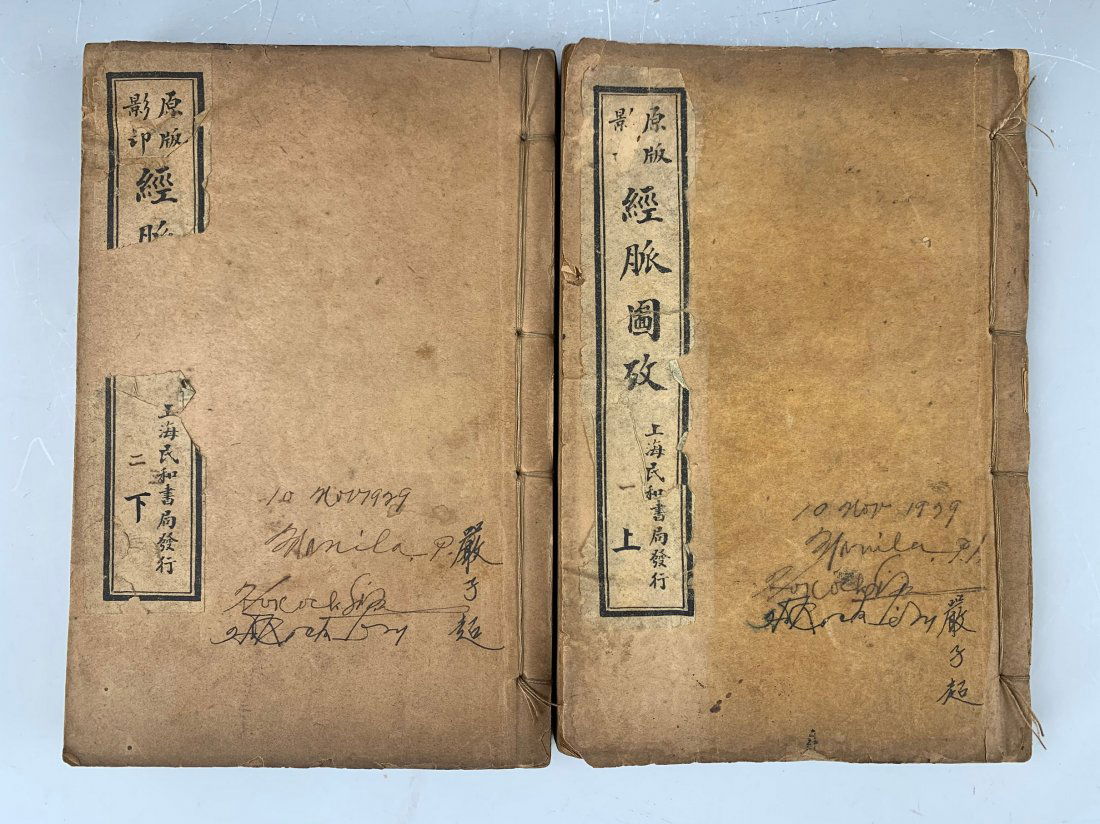 原版
影印
經
脈
上海民和書局發行
二
下
10 Nov 1929
Manila, P.
嚴子超
原版
影
經脈圖攷
上海民和書局發行
一
上
10 Nov 1929
Manila, P.I.
嚴子超